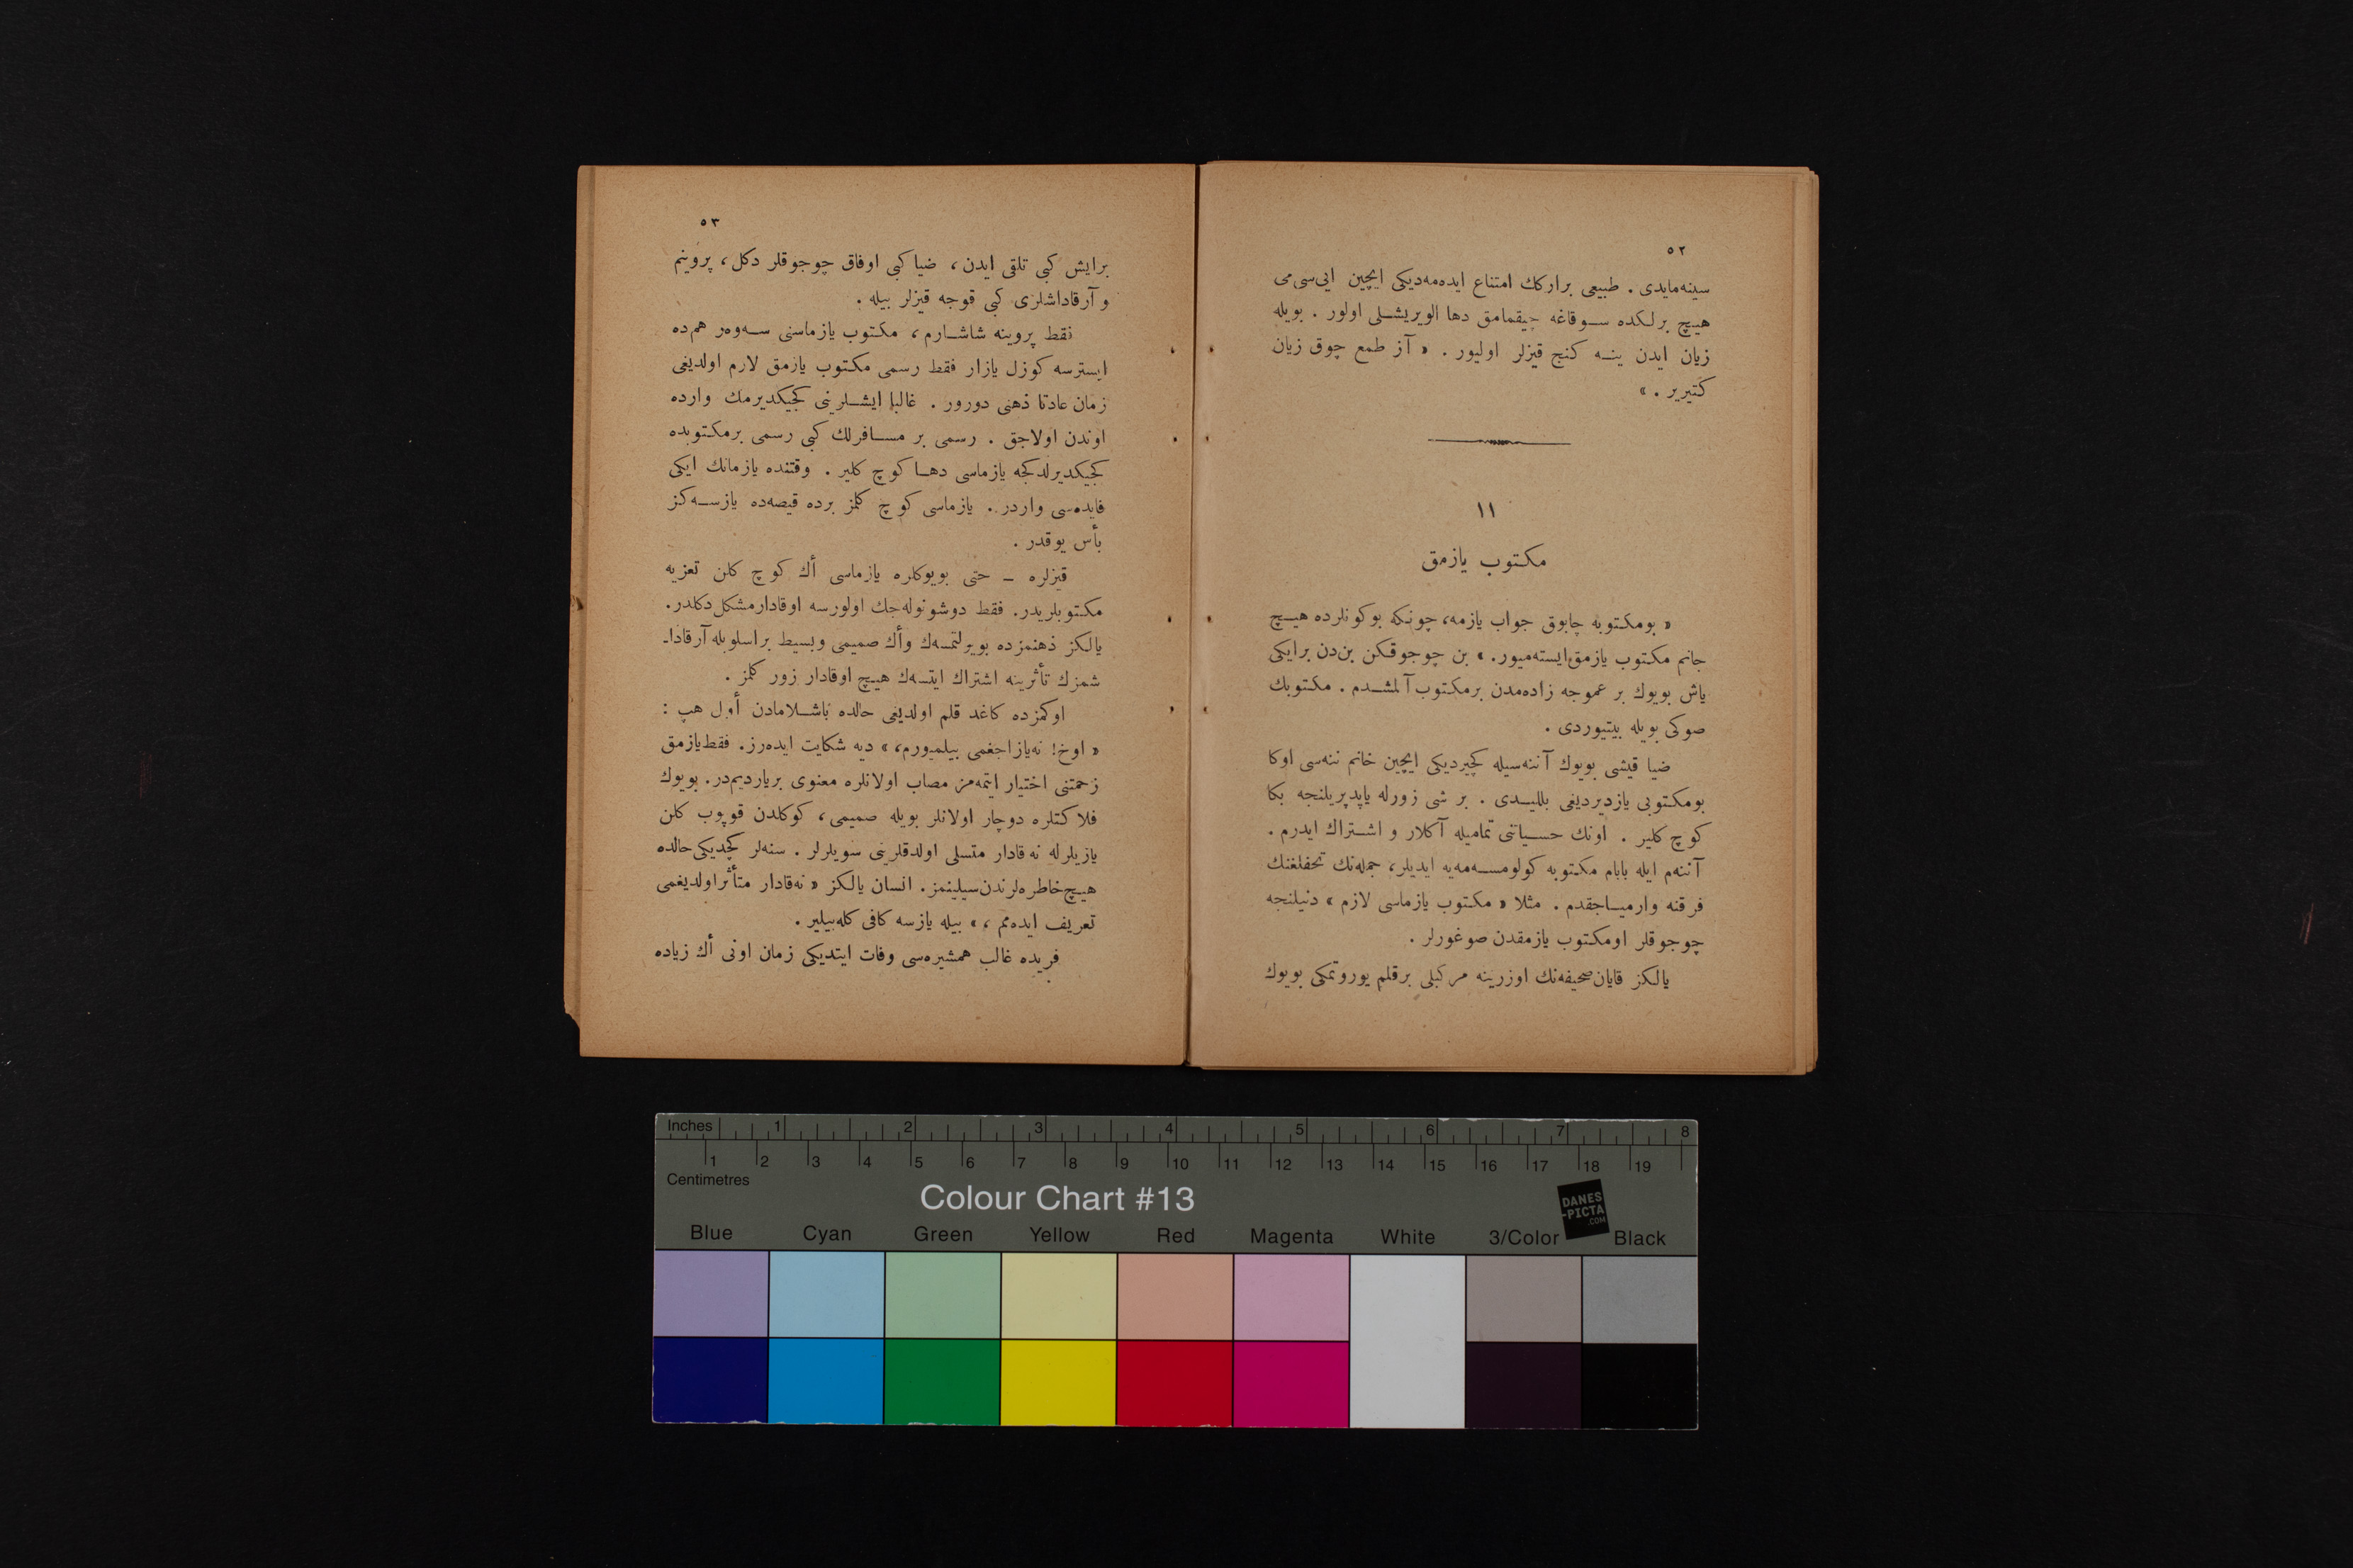 ٥٢
سينه‌مايدی . طبيعی براركك امتناع ايده‌مه‌ديكی ايچين ايی‌سی می
هيچ برلكده سوقاغه چيقمامق دها الويريشلی اولور . بويله
زيان ايدن ينه كنج قيزلر اوليور . « آز طمع چوق زيان
كتيرير . »
١١
مكتوب يازمق
« بومكتوبه چابوق جواب يازمه، چونكه بوكونلرده هيچ
جانم مكتوب يازمق ايسته‌ميور. » بن چوجوقكن بن‌دن برايكی
ياش بويوك بر عموجه زاده‌مدن برمكتوب آلمشدم . مكتوبك
صوكی بويله بيتيوردی .
ضيا قيشی بويوك آننه‌سيله كچيرديكی ايچين خانم ننه‌سی اوكا
بومكتوبی يازديرديغی بللیدی . بر شی زورله ياپديريلنجه بكا
كوچ كلير . اونك حسياتنی تماميله آكلار و اشتراك ايدرم .
آننه‌م ايله بابام مكتوبه كولومسه‌مه‌يه ايديلر، جمله‌نك تحفلغنك
فرقنه وارمياجقدم . مثلا « مكتوب يازماسی لازم » دنيلنجه
چوجوقلر اومكتوب يازمقدن صوغورلر .
يالكز قايان صحيفه‌نك اوزرينه مركبلی برقلم يوروتمكی بويوك
٥٣
برايش كبی تلقی ايدن، ضيا كبی اوفاق چوجوقلر دكل، پروينم
و آرقاداشلری كبی قوجه قيزلر بيله .
فقط پروينه شاشارم، مكتوب يازماسنی سه‌وه‌ر هم‌ده
ايسترسه كوزل يازار فقط رسمی مكتوب يازمق لازم اولديغی
زمان عادتا ذهنی دورور . غالبا ايشلرينی كجيكديرمك وارده
اوندن اولاجق . رسمی بر مسافرلك كبی رسمی برمكتوبده
كجيكديرلدكجه يازماسی دها كوچ كلير . وقتنده يازمانك ايكی
فايده‌سی واردر . يازماسی كوچ كلمز برده قيصه‌ده يازسه‌كز
بأس يوقدر .
قيزلره ـ حتی بويوكلره يازماسی أك كوچ كلن تعزيه
مكتوبلريدر. فقط دوشونوله‌جك اولورسه اوقادار مشكل دكلدر.
يالكز ذهنمزده بويرلتمسه‌ك وأك صميمی وبسيط براسلوبله آرقاداـ
شمزك تأثرينه اشتراك ايتسه‌ك هيچ اوقادار زور كلمز .
اوكمزده كاغد قلم اولديغی حالده باشلامادن أول هپ :
« اوخ! نه‌يازاجغمی بيلميورم، » ديه شكايت ايده‌رز. فقط يازمق
زحمتنی اختيار ايتمه‌مز مصاب اولانلره معنوی برياردیم‌در. بويوك
فلاكتلره دوچار اولانلر بويله صميمی، كوكلدن قوپوب كلن
يازيلرله نه قادار متسلی اولدقلرينی سويلرلر . سنه‌لر كچديكی حالده
هيچ خاطره‌لرندن سيلينمز. انسان يالكز « نه‌قادار متأثر اولديغمی
تعريف ايده‌مم ، » بيله يازسه كافی كله‌بيلير .
فريده غالب همشيره‌سی وفات ايتديكی زمان اونی أك زياده
Inches 1 2 3 4 5 6 7 8
1 2 3 4 5 6 7 8 9 10 11 12 13 14 15 16 17 18 19
Centimetres
Colour Chart #13
DANES
-PICTA
.COM
Blue Cyan Green Yellow Red Magenta White 3/Color Black